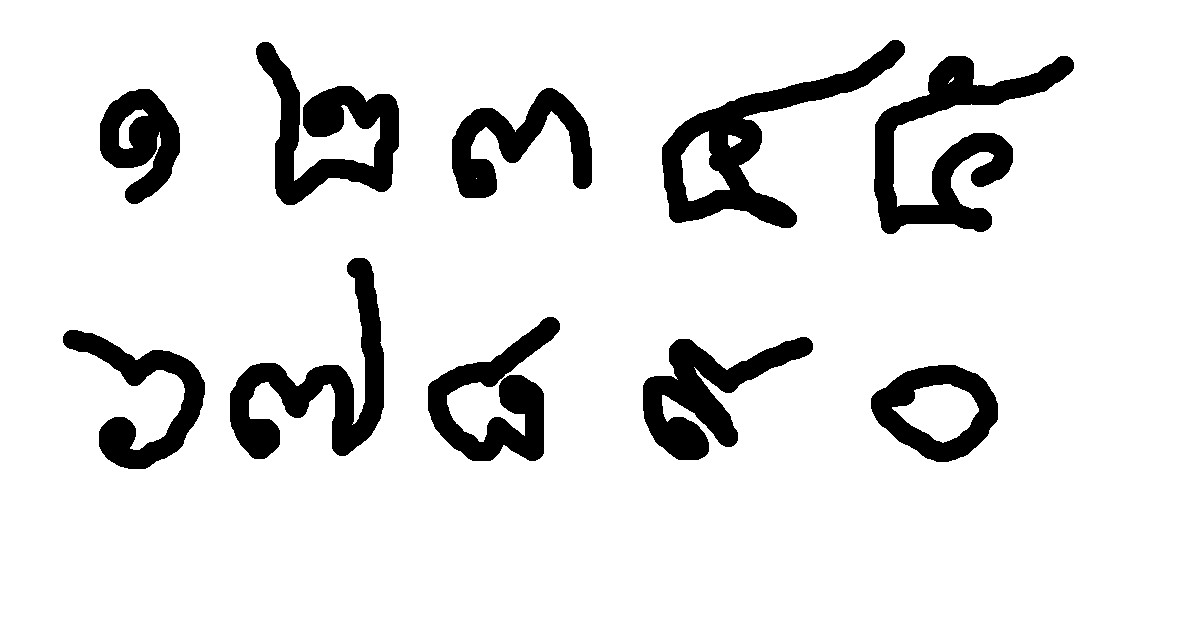 ๑ ๒ ๓ ๔ ๕
๖ ๗ ๘ ๙ ๐